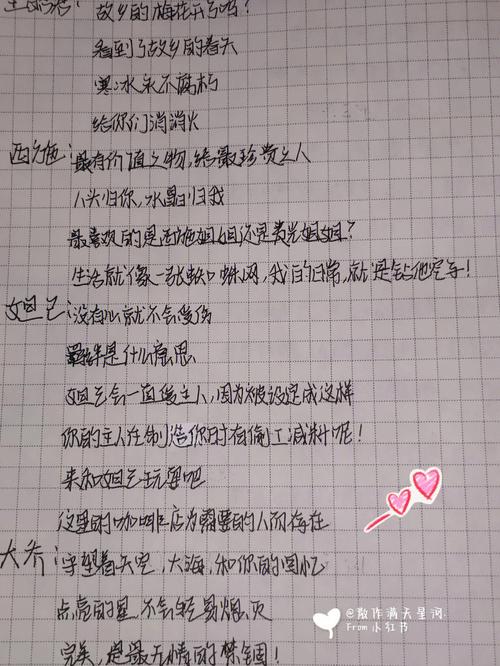 王昭君：故乡的梅花开了吗？
看到了故乡的春天
寒冰永不腐朽
给你们消消火
西施：最有价值之物，给最珍贵之人
人头归你，水晶归我
最喜欢的是西施姐姐还是贵光姐姐？
生活就像一张蜘蛛网，我的日常，就是钻他空子！
妲己：没有心就不会受伤
羁绊是什么意思
妲己会一直爱主人，因为被设定成这样
你的主人在制造你时有偷工减料呢！
来和妲己玩耍吧
这里的咖啡店为需要的人而存在
大乔：守望着天空，大海，和你的回忆
点亮的星，不会轻易熄灭
完美，是最无情的禁锢！
@散作满天星河
From 小红书